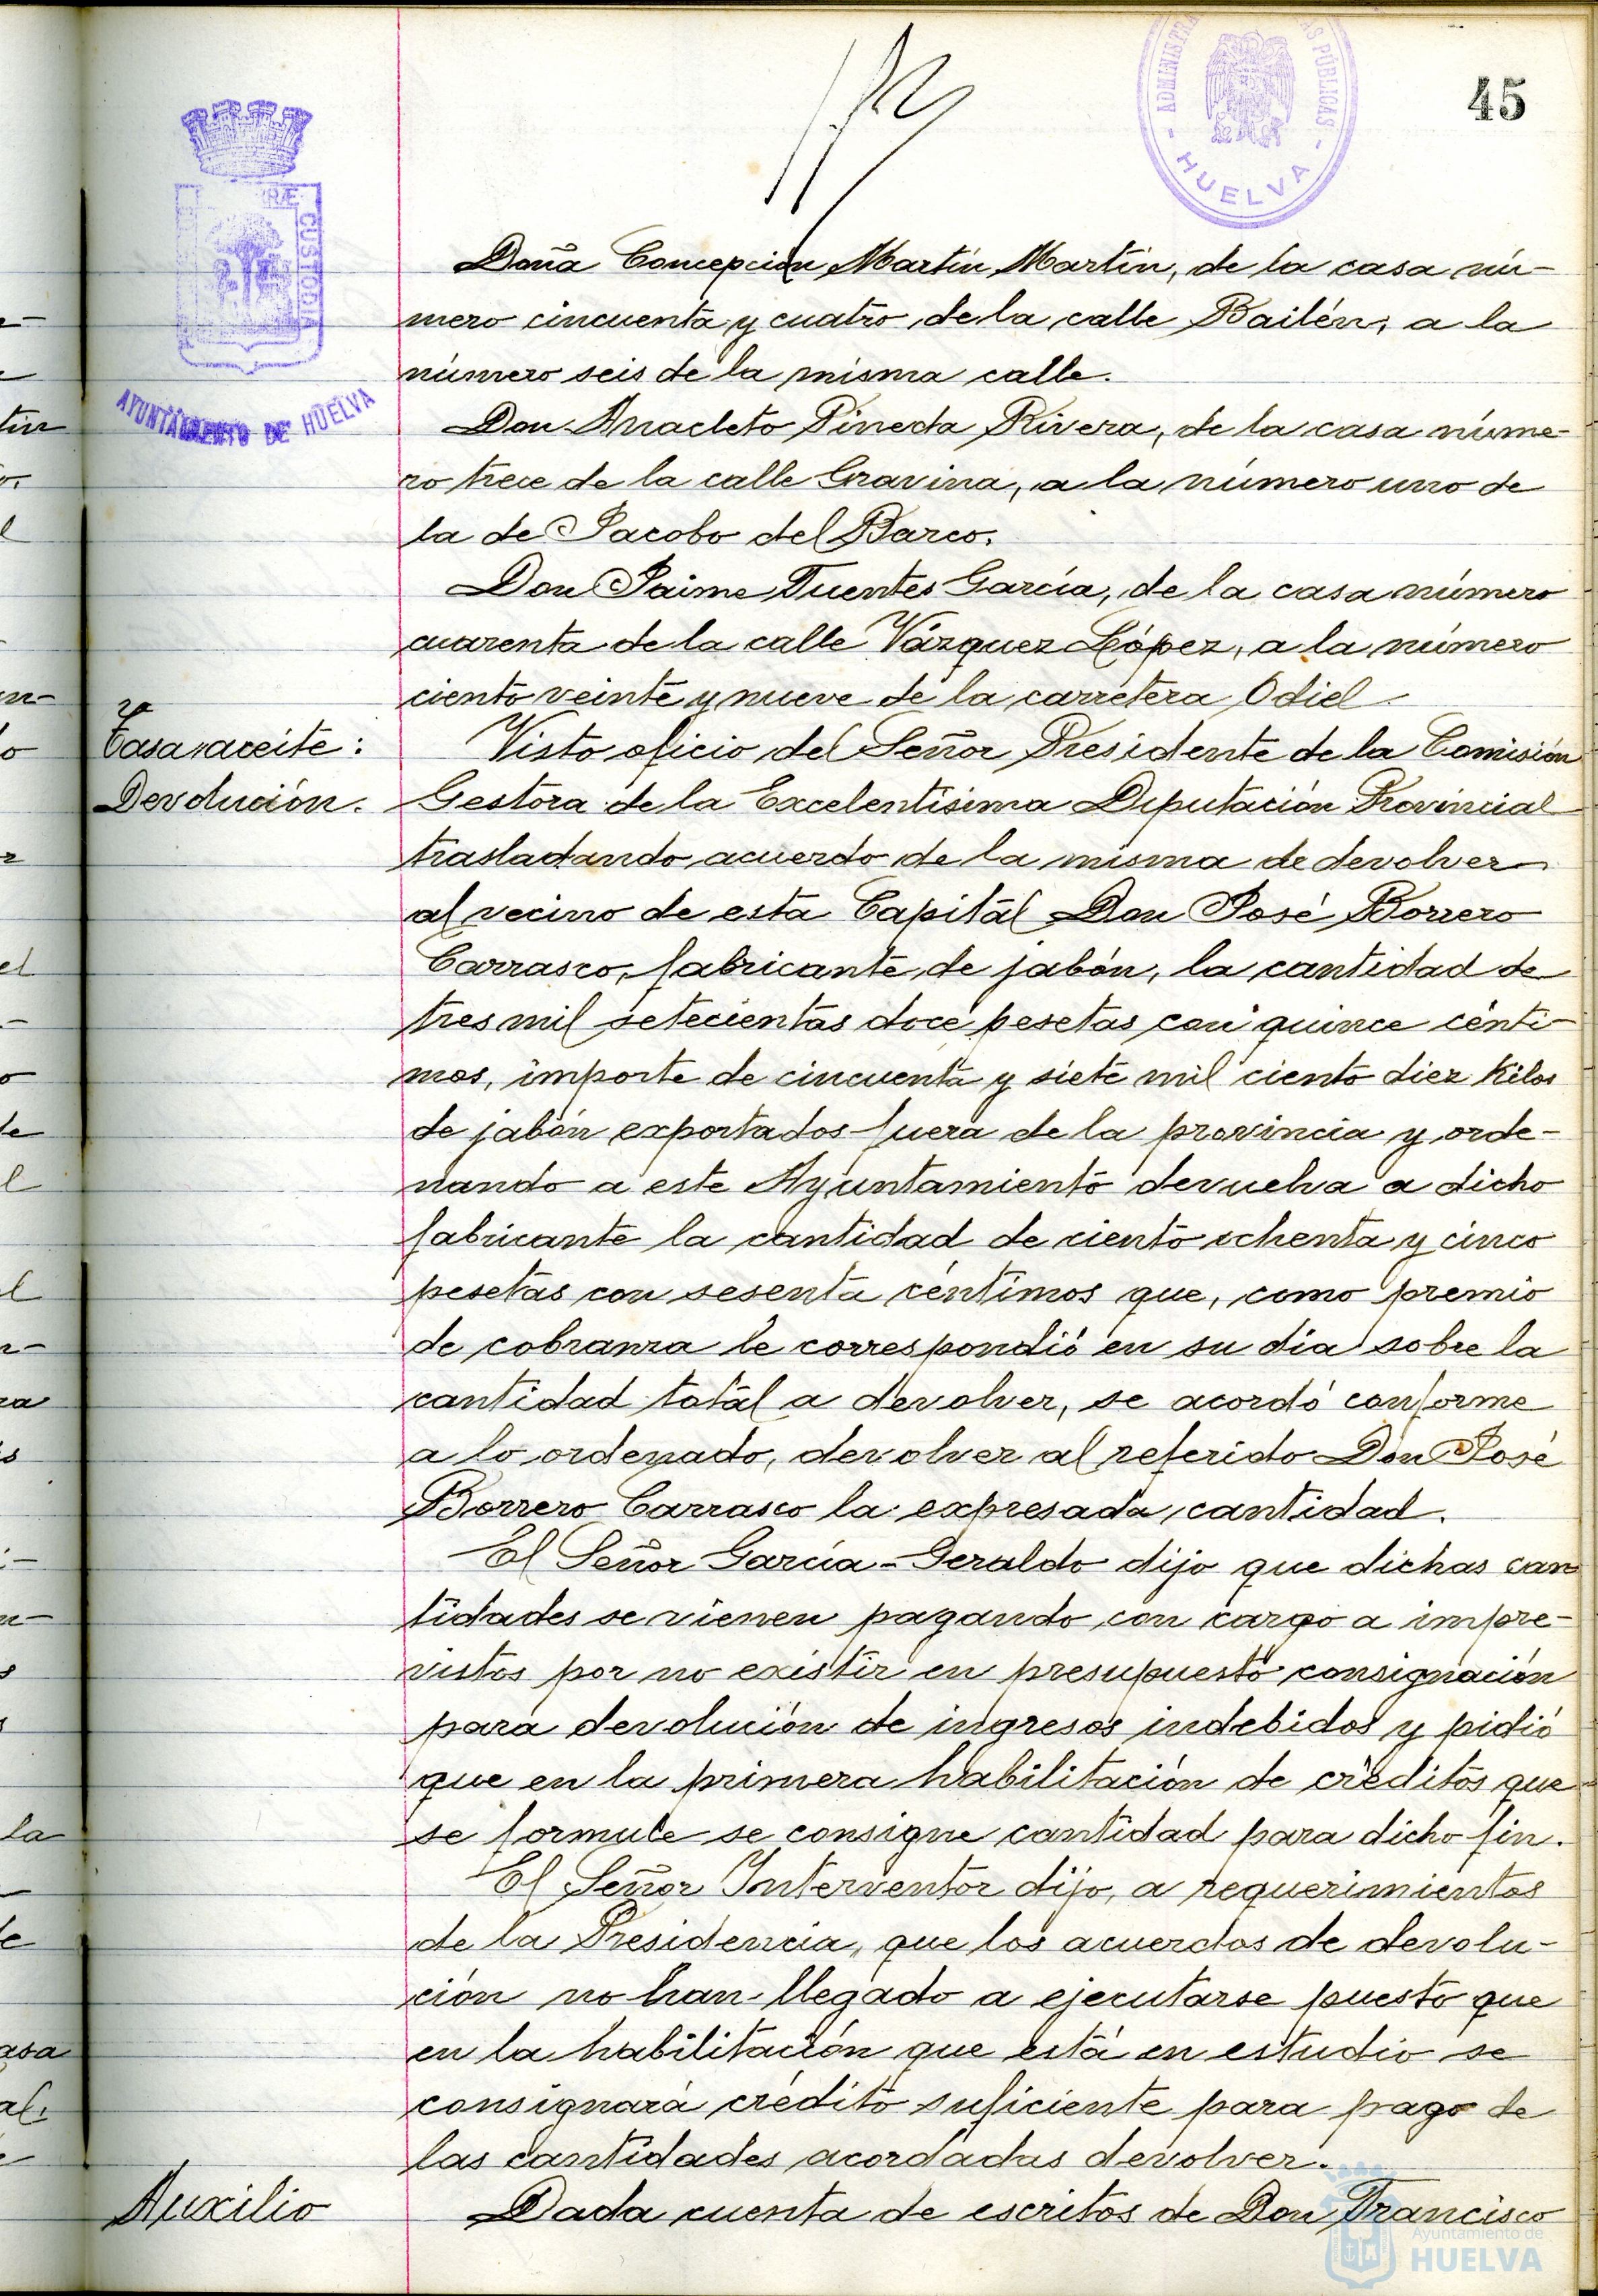 45
ADMINISTRA
AS PÚBLICAS
- HUELVA -
RÆ
CUSTODIA
AYUNTAMIENTO DE HUELVA
Doña Concepción Martín Martín, de la casa nú-
mero cincuenta y cuatro de la calle Bailén, a la
número seis de la misma calle.
Don Anacleto Pineda Rivera, de la casa núme-
ro trece de la calle Gravina, a la número uno de
la de Jacobo del Barco.
Don Jaime Fuentes García, de la casa número
cuarenta de la calle Vázquez López, a la número
ciento veinte y nueve de la carretera Odiel.
Tasa aceite:
Devolución.
Visto oficio del Señor Presidente de la Comisión
Gestora de la Excelentísima Diputación Provincial
trasladando acuerdo de la misma de devolver
al vecino de esta Capital Don José Borrero
Carrasco, fabricante de jabón, la cantidad de
tres mil setecientas doce pesetas con quince cénti-
mos, importe de cincuenta y siete mil ciento diez kilos
de jabón exportados fuera de la provincia y orde-
nando a este Ayuntamiento devuelva a dicho
fabricante la cantidad de ciento ochenta y cinco
pesetas con sesenta céntimos que, como premio
de cobranza le correspondió en su día sobre la
cantidad total a devolver, se acordó conforme
a lo ordenado, devolver al referido Don José
Borrero Carrasco la expresada cantidad.
El Señor García-Geraldo dijo que dichas can
tidades se vienen pagando con cargo a impre-
vistos por no existir en presupuesto consignación
para devolución de ingresos indebidos y pidió
que en la primera habilitación de créditos que
se formule se consigne cantidad para dicho fin.
El Señor Interventor dijo, a requerimientos
de la Presidencia, que los acuerdos de devolu-
ción no han llegado a ejecutarse puesto que
en la habilitación que está en estudio se
consignará crédito suficiente para pago de
las cantidades acordadas devolver.
Auxilio
Dada cuenta de escritos de Don Francisco
Ayuntamiento de
HUELVA